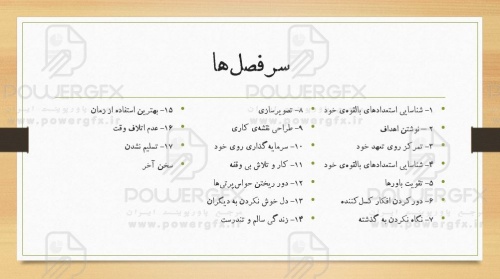 سرفصل‌ها
۱- شناسایی استعدادهای بالقوه‌ی خود
۲- نوشتن اهداف
۳- تمرکز روی تعهد خود
۴- شناسایی استعدادهای بالقوه‌ی خود
۵- تقویت باورها
۶- دور کردن افکار کسل‌کننده
۷- نگاه نکردن به گذشته
۸- تصویرسازی
۹- طراحی نقشه‌ی کاری
۱۰- سرمایه‌گذاری روی خود
۱۱- کار و تلاش بی وقفه
۱۲- دور ریختن حواس‌پرتی‌ها
۱۳- دل خوش نکردن به دیگران
۱۴- زندگی سالم و تندرست
۱۵- بهترین استفاده از زمان
۱۶- عدم اتلاف وقت
۱۷- تسلیم نشدن
سخن آخر
POWERGFX
www.powergfx.ir